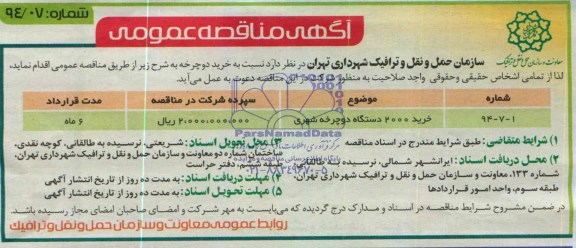 شماره: ۹۴/۰۷
آگهی مناقصه عمومی
معاونت و سازمان حمل و نقل و ترافیک
سازمان حمل و نقل و ترافیک شهرداری تهران در نظر دارد نسبت به خرید دوچرخه به شرح زیر از طریق مناقصه عمومی اقدام نماید،
لذا از تمامی اشخاص حقیقی و حقوقی واجد صلاحیت به منظور شرکت در این مناقصه دعوت به عمل می‌آید.
شماره موضوع سپرده شرکت در مناقصه مدت قرارداد
۹۴-۷-۱ خرید ۲۰۰۰ دستگاه دوچرخه شهری ۲,۰۰۰,۰۰۰,۰۰۰ ریال ۶ ماه
۱) شرایط متقاضی: طبق شرایط مندرج در اسناد مناقصه
۲) محل دریافت اسناد: ایرانشهر شمالی، نرسیده به طالقانی،
شماره ۱۳۳، معاونت و سازمان حمل و نقل و ترافیک شهرداری تهران،
طبقه سوم، واحد امور قراردادها
۳) محل تحویل اسناد: شریعتی، نرسیده به طالقانی، کوچه نقدی،
ساختمان شماره دو معاونت و سازمان حمل و نقل و ترافیک شهرداری تهران،
طبقه ششم، دفتر حراست
۴) مهلت دریافت اسناد: به مدت ده روز از تاریخ انتشار آگهی
۵) مهلت تحویل اسناد: به مدت ده روز از تاریخ انتشار آگهی
در ضمن مشروح شرایط مناقصه در اسناد و مدارک درج گردیده که می‌بایست به مهر شرکت و امضای صاحبان امضای مجاز رسیده باشد.
روابط عمومی معاونت و سازمان حمل و نقل و ترافیک
ParsNamadData
۰۲۱-۸۸۳۴۹۶۷۰-۵